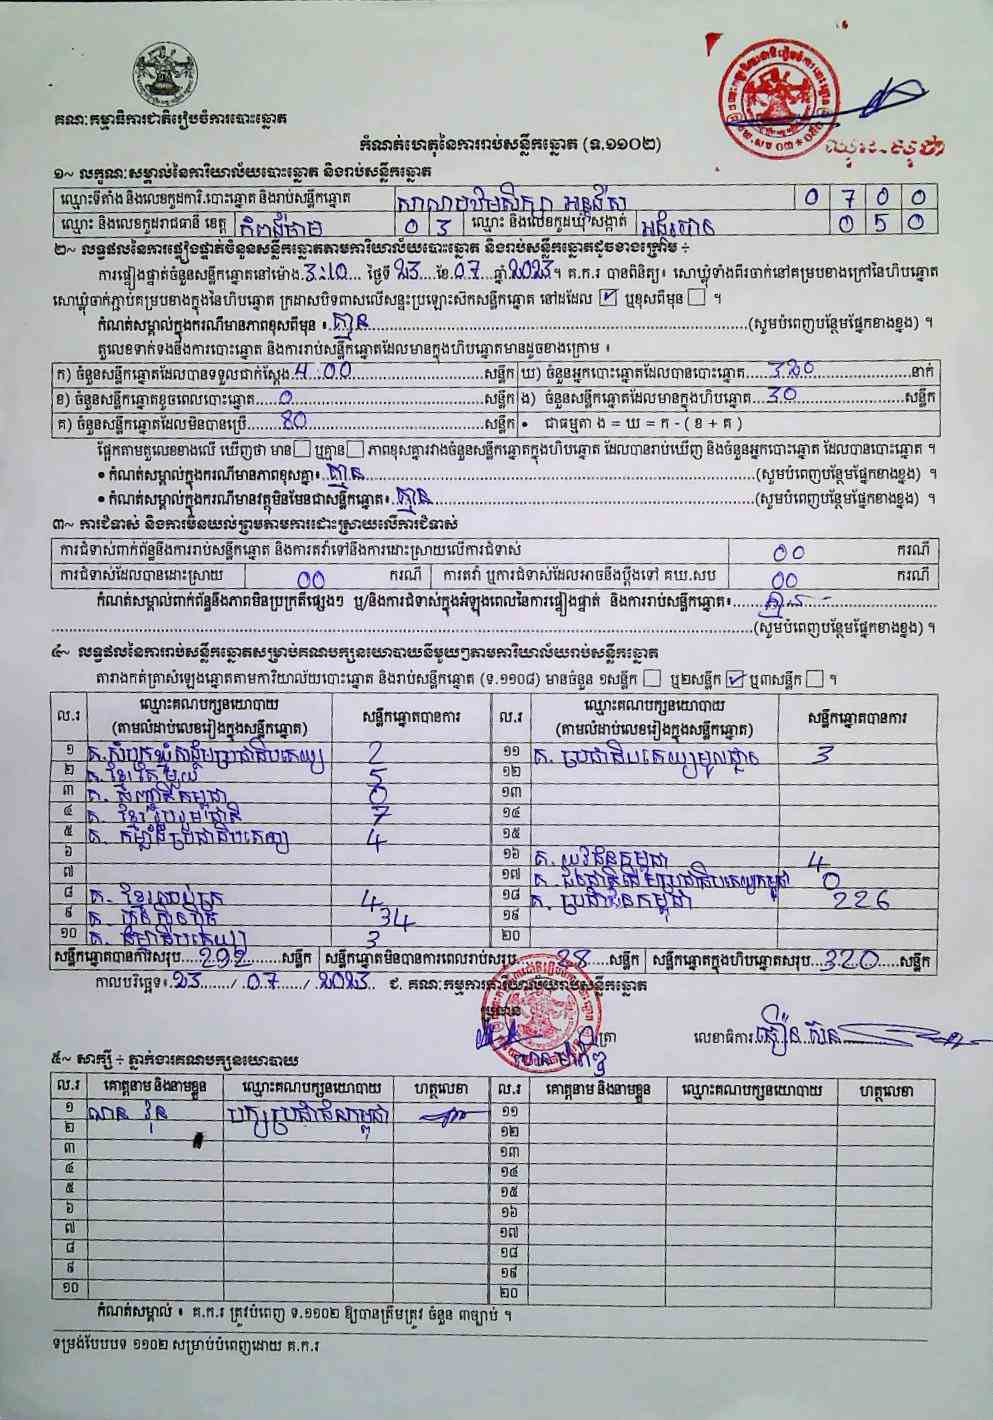 គណៈកម្មាធិការជាតិរៀបចំការបោះឆ្នោត
កំណត់ហេតុនៃការរាប់សន្លឹកឆ្នោត (ទ.១១០២)
១~ លក្ខណៈសម្គាល់នៃការិយាល័យបោះឆ្នោត និងរាប់សន្លឹកឆ្នោត
ឈ្មោះទីតាំង និងលេខកូដការិ.បោះឆ្នោត និងរាប់សន្លឹកឆ្នោត 0 7 0 0
ឈ្មោះ និងលេខកូដរាជធានី ខេត្ត កំពង់ចាម 0 3 ឈ្មោះ និងលេខកូដឃុំ សង្កាត់ 0 5 0
២~ លទ្ធផលនៃការផ្ទៀងផ្ទាត់ចំនួនសន្លឹកឆ្នោតតាមការិយាល័យបោះឆ្នោត និងរាប់សន្លឹកឆ្នោតដូចខាងក្រោម ÷
ការផ្ទៀងផ្ទាត់ចំនួនសន្លឹកឆ្នោតនៅម៉ោង 3:10 ថ្ងៃទី 23 ខែ 07 ឆ្នាំ 2023។ គ.ក.រ បានពិនិត្យ៖ សោឃ្លុំទាំងពីរចាក់នៅគម្របខាងក្រៅនៃហិបឆ្នោត
សោឃ្លុំចាក់ភ្ជាប់គម្របខាងក្នុងនៃហិបឆ្នោត ក្រដាសបិទពាសលើសន្ទះប្រឡោះសឹកសន្លឹកឆ្នោត នៅដដែល ☑ ឬខុសពីមុន ☐ ។
កំណត់សម្គាល់ក្នុងករណីមានភាពខុសពីមុន ៖ គ្មាន (សូមបំពេញបន្ថែមផ្នែកខាងខ្នង) ។
តួលេខទាក់ទងនឹងការបោះឆ្នោត និងការរាប់សន្លឹកឆ្នោតដែលមានក្នុងហិបឆ្នោតមានដូចខាងក្រោម ៖
ក) ចំនួនសន្លឹកឆ្នោតដែលបានទទួលជាក់ស្តែង 400 សន្លឹក ឃ) ចំនួនអ្នកបោះឆ្នោតដែលបានបោះឆ្នោត 320 នាក់
ខ) ចំនួនសន្លឹកឆ្នោតខូចពេលបោះឆ្នោត 0 សន្លឹក ង) ចំនួនសន្លឹកឆ្នោតដែលមានក្នុងហិបឆ្នោត 30 សន្លឹក
គ) ចំនួនសន្លឹកឆ្នោតដែលមិនបានប្រើ 80 សន្លឹក • ជាធម្មតា ង = ឃ = ក - ( ខ + គ )
ផ្អែកតាមតួលេខខាងលើ ឃើញថា មាន ☐ ឬគ្មាន ☐ ភាពខុសគ្នារវាងចំនួនសន្លឹកឆ្នោតក្នុងហិបឆ្នោត ដែលបានរាប់ឃើញ និងចំនួនអ្នកបោះឆ្នោត ដែលបានបោះឆ្នោត ។
• កំណត់សម្គាល់ក្នុងករណីមានភាពខុសគ្នា៖ គ្មាន (សូមបំពេញបន្ថែមផ្នែកខាងខ្នង) ។
• កំណត់សម្គាល់ក្នុងករណីមានវត្ថុមិនមែនជាសន្លឹកឆ្នោត៖ គ្មាន (សូមបំពេញបន្ថែមផ្នែកខាងខ្នង) ។
៣~ ការជំទាស់ និងការមិនយល់ព្រមតាមការដោះស្រាយលើការជំទាស់
ការជំទាស់ពាក់ព័ន្ធនឹងការរាប់សន្លឹកឆ្នោត និងការតវ៉ាទៅនឹងការដោះស្រាយលើការជំទាស់ 00 ករណី
ការជំទាស់ដែលបានដោះស្រាយ 00 ករណី ការតវ៉ា ឬការជំទាស់ដែលអាចនឹងប្តឹងទៅ គឃ.សប 00 ករណី
កំណត់សម្គាល់ពាក់ព័ន្ធនឹងភាពមិនប្រក្រតីផ្សេងៗ ឬ/និងការជំទាស់ក្នុងអំឡុងពេលនៃការផ្ទៀងផ្ទាត់ និងការរាប់សន្លឹកឆ្នោត៖ គ្មាន
(សូមបំពេញបន្ថែមផ្នែកខាងខ្នង) ។
៤~ លទ្ធផលនៃការរាប់សន្លឹកឆ្នោតសម្រាប់គណបក្សនយោបាយនីមួយៗតាមការិយាល័យរាប់សន្លឹកឆ្នោត
តារាងកត់ត្រាសំឡេងឆ្នោតតាមការិយាល័យបោះឆ្នោត និងរាប់សន្លឹកឆ្នោត (ទ.១១០៨) មានចំនួន ១សន្លឹក ☐ ឬ២សន្លឹក ☑ ឬ៣សន្លឹក ☐ ។
ល.រ ឈ្មោះគណបក្សនយោបាយ (តាមលំដាប់លេខរៀងក្នុងសន្លឹកឆ្នោត) សន្លឹកឆ្នោតបានការ ល.រ ឈ្មោះគណបក្សនយោបាយ (តាមលំដាប់លេខរៀងក្នុងសន្លឹកឆ្នោត) សន្លឹកឆ្នោតបានការ
១ គ.សំបុកឃ្មុំសង្គមប្រជាធិបតេយ្យ 2 ១១ គ.ប្រជាធិបតេយ្យមូលដ្ឋាន 3
២ គ.ខ្មែរតែមួយ 5 ១២
៣ គ.សញ្ជាតិកម្ពុជា 0 ១៣
៤ គ.ខ្មែររួបរួមជាតិ 7 ១៤
៥ គ.កម្លាំងប្រជាធិបតេយ្យ 4 ១៥
៦ ១៦ គ.យុវជនកម្ពុជា 4
៧ ១៧ 0
៨ គ.ខ្មែរឈប់ក្រ 4 ១៨ គ.ប្រជាជនកម្ពុជា 226
៩ គ.ហ៊្វុនស៊ិនប៉ិច 34 ១៩
១០ គ.ធម្មាធិបតេយ្យ 3 ២០
សន្លឹកឆ្នោតបានការសរុប 292 សន្លឹក សន្លឹកឆ្នោតមិនបានការពេលរាប់សរុប 28 សន្លឹក សន្លឹកឆ្នោតក្នុងហិបឆ្នោតសរុប 320 សន្លឹក
កាលបរិច្ឆេទ៖ 23 / 07 / 2023 ជ. គណៈកម្មការការិយាល័យរាប់សន្លឹកឆ្នោត
ប្រធាន
ត្រា លេខាធិការ
៥~ សាក្សី ÷ ភ្នាក់ងារគណបក្សនយោបាយ
ល.រ គោត្តនាម និងនាមខ្លួន ឈ្មោះគណបក្សនយោបាយ ហត្ថលេខា ល.រ គោត្តនាម និងនាមខ្លួន ឈ្មោះគណបក្សនយោបាយ ហត្ថលេខា
១ បក្សប្រជាជនកម្ពុជា ១១
២ ១២
៣ ១៣
៤ ១៤
៥ ១៥
៦ ១៦
៧ ១៧
៨ ១៨
៩ ១៩
១០ ២០
កំណត់សម្គាល់ ៖ គ.ក.រ ត្រូវបំពេញ ទ.១១០២ ឱ្យបានត្រឹមត្រូវ ចំនួន ៣ច្បាប់ ។
ទម្រង់បែបបទ ១១០២ សម្រាប់បំពេញដោយ គ.ក.រ